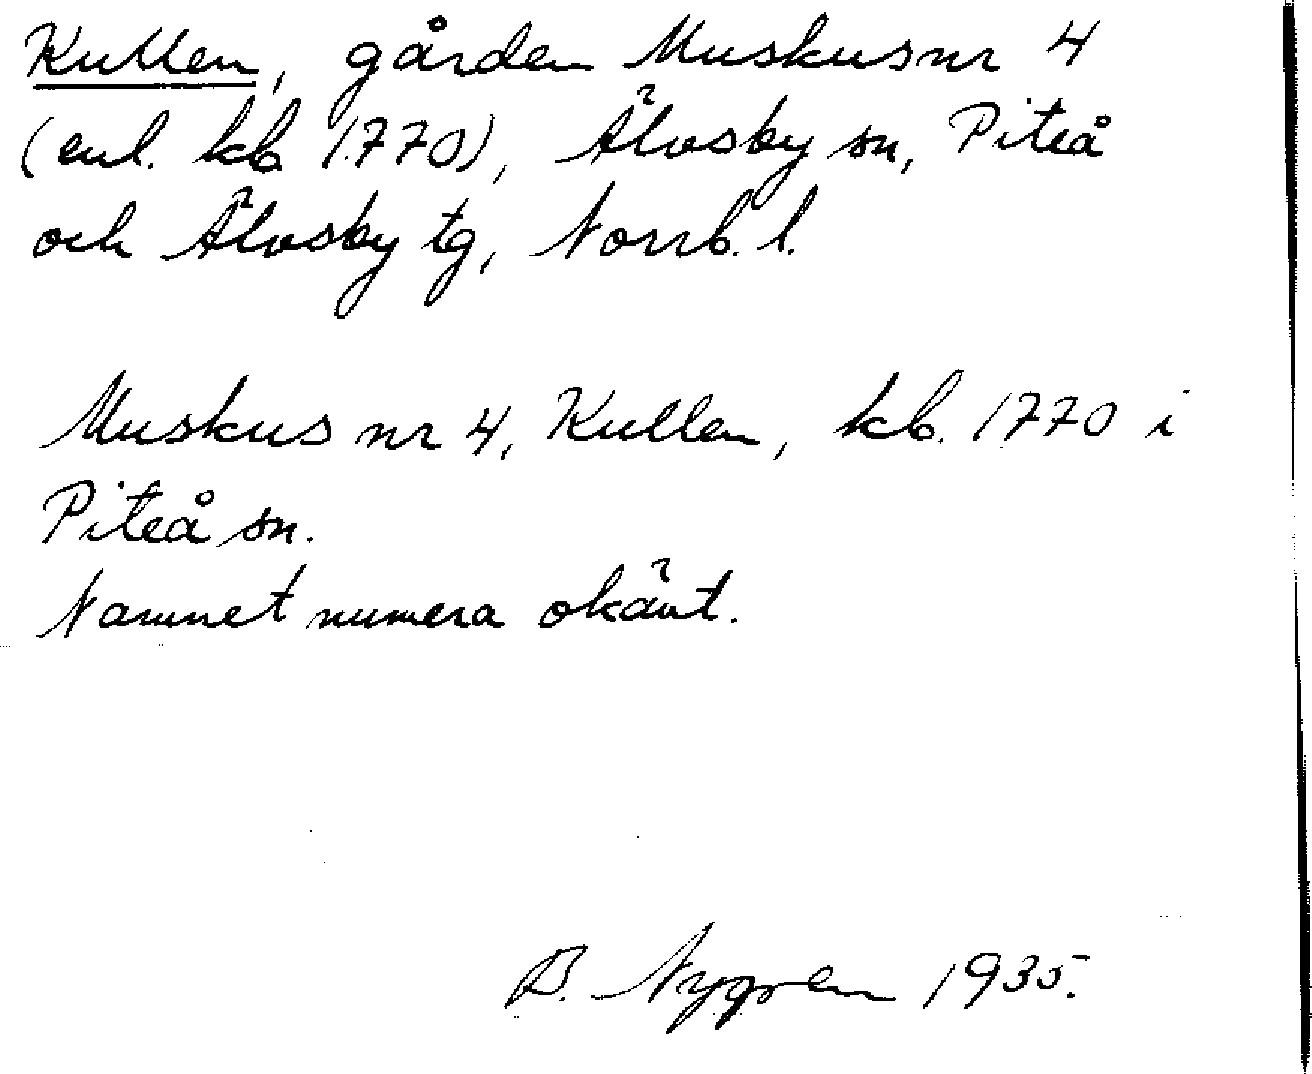 Kullen, gården Muskus nr 4
(enl. kb. 1770), Älvsby sn, Piteå
och Älvsby tg, Norrb. l.
Muskus nr 4, Kullen, kb. 1770 i
Piteå sn.
Namnet numera okänt.
B. Nygren 1935.